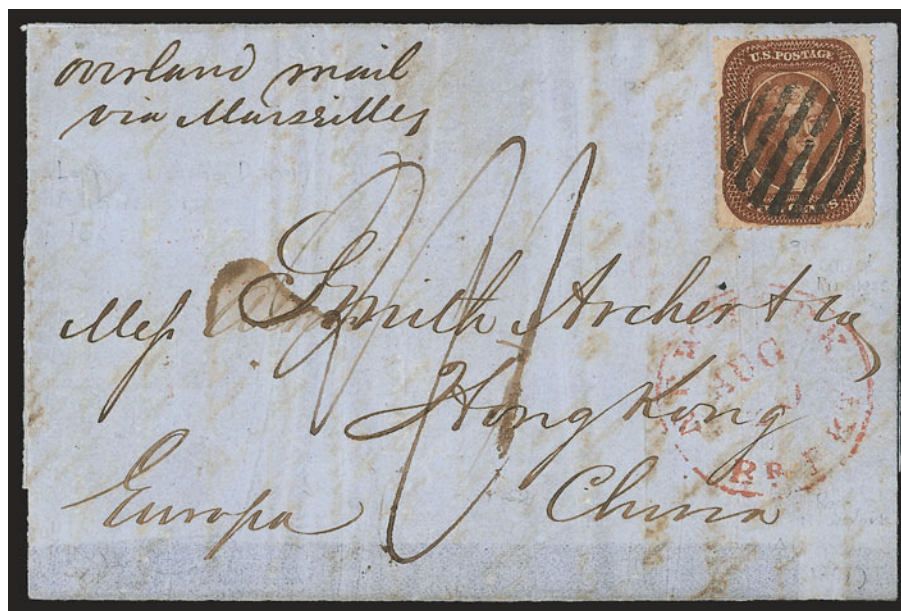 overland mail
via Marseilles
U.S. POSTAGE
CENTS.
Mess Smith Archer & Co
Hong Kong
China
Europa
AUG
PKT